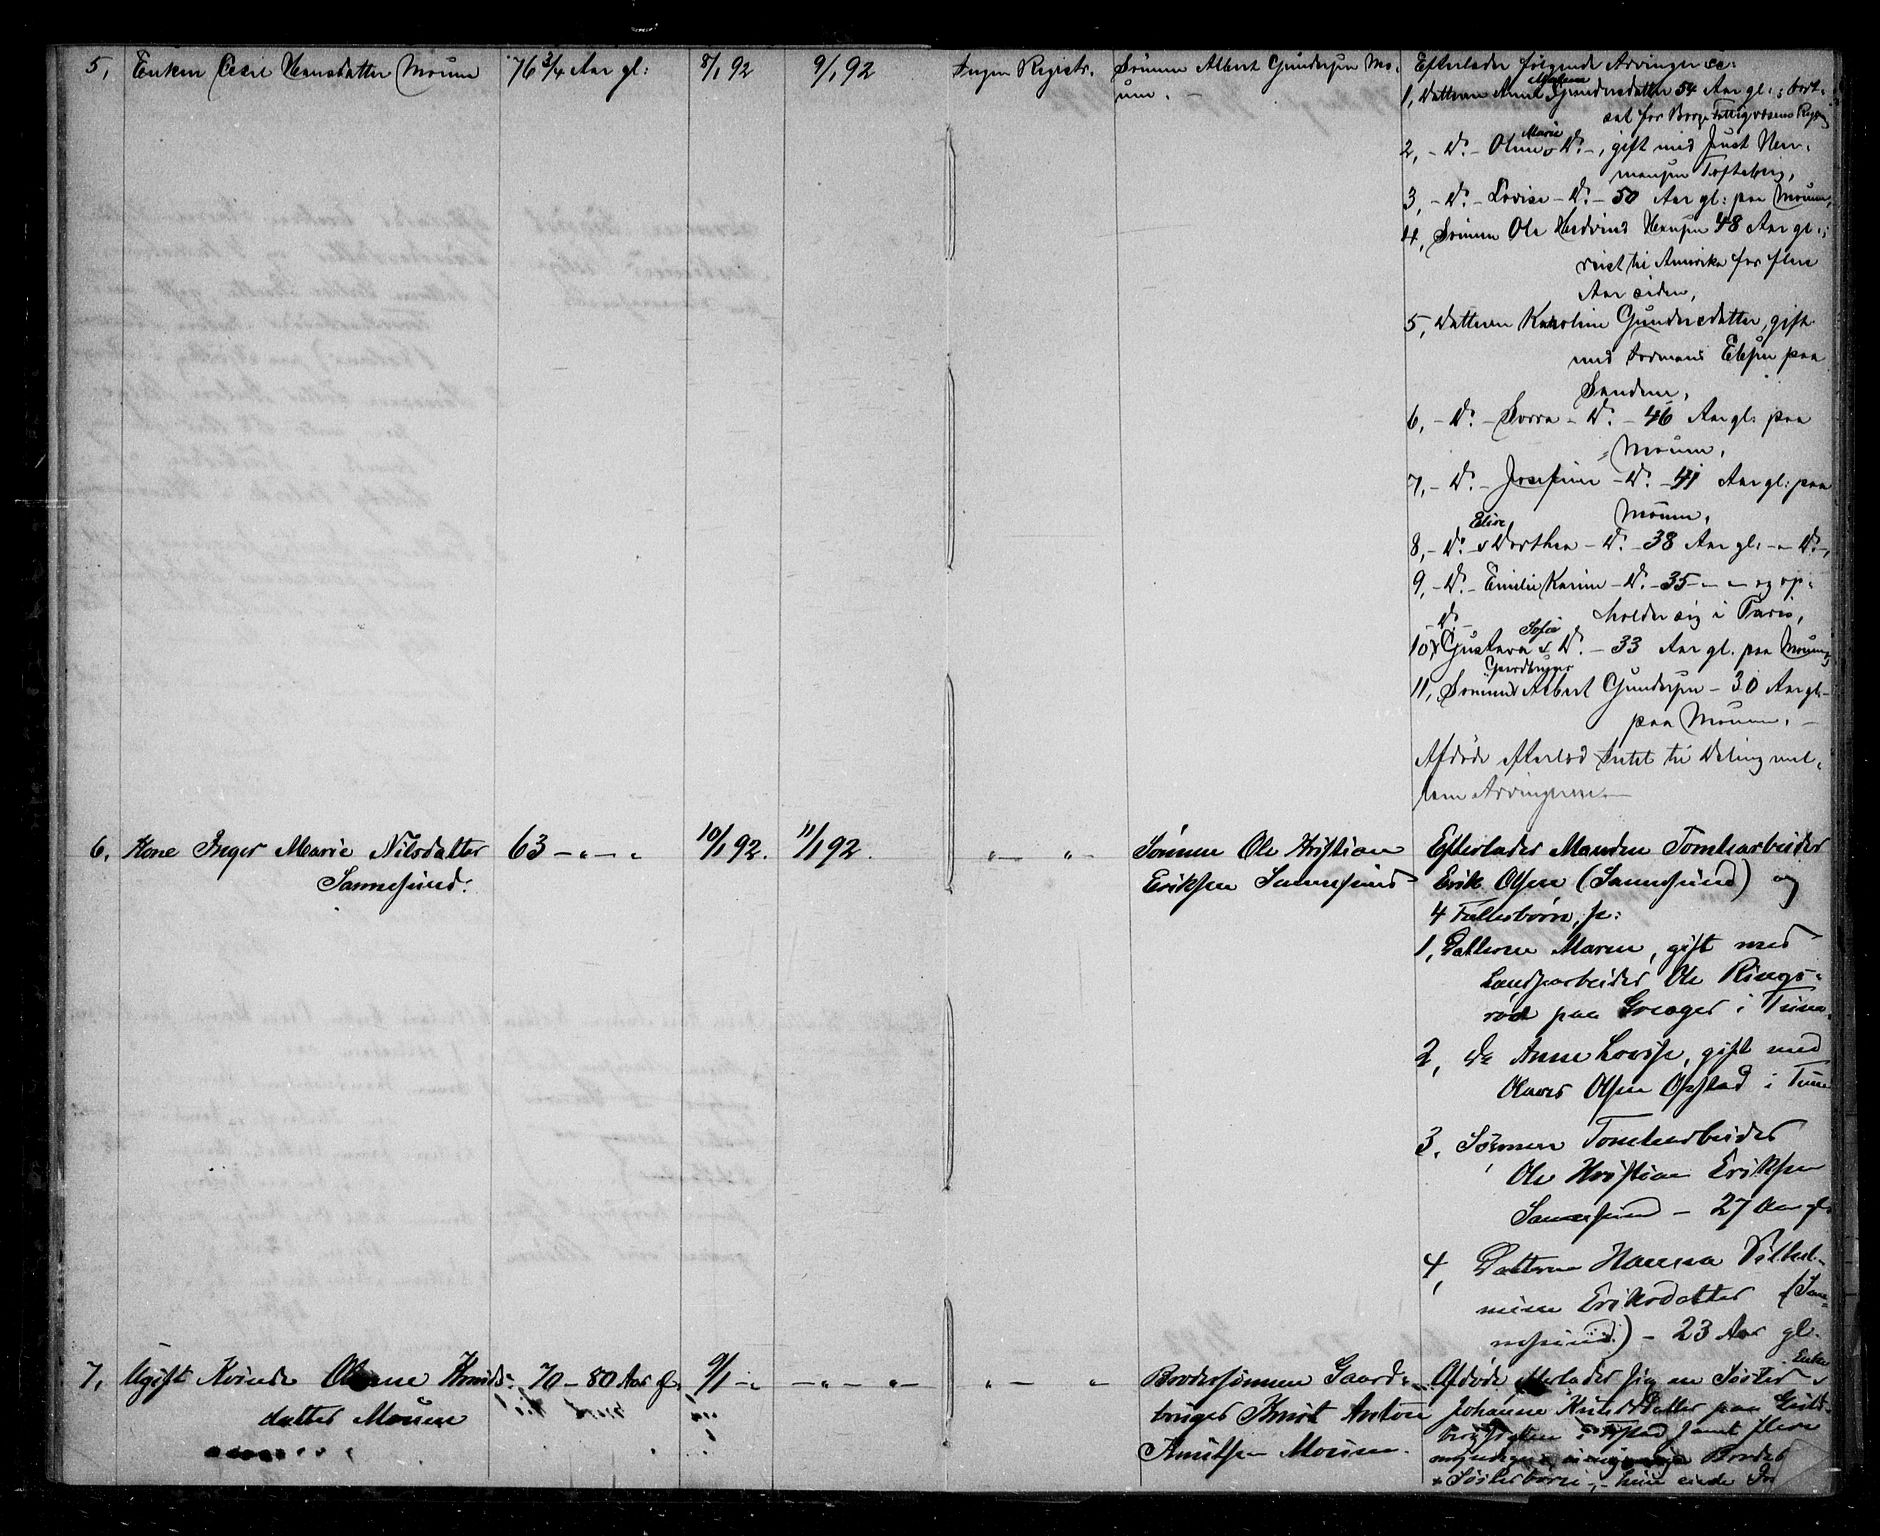 5, Enken Cecil Hansdatter Moum 76 3/4 Aar gl: 8/1 92 9/1 92 Ingen Registr. Sönnen Albert Gundersen Mo-
um.
Efterlader følgende Arvinger sc:
1, Datteren Anne Mathea Gundersdatter 54 Aar gl:; bort-
sat for Borge Fattigvæsens Regn
2, - Do. - Oline Marie Do. -, gift med Just Her-
mansen Tofteberg,
3, - Do. - Lovise - Do. - 50 Aar gl: paa Moum,
4, Sönnen Ole Hansen 48 Aar gl.;
reist til Amerika for flere
Aar siden,
5, Datteren Karoline Gundersdatter, gift
med Formand Ellefsen paa
Sanden,
6, - Do. - - Do. - 46 Aar gl: paa
Moum,
7, - Do. - Josefine - Do. - 41 Aar gl: paa
Moum,
8, - Do. Elise Dorthea - Do. - 38 Aar gl: - - Do. -,
9, - Do. - Emilie Karine - Do. - 35 - - - og op-
holder sig i Paris,
- Do. -
10, Gustava Sofie Do. - 33 Aar gl. paa Moum,
11, Sönnen Gaardbruger Albert Gundersen - 30 Aar gl -
paa Moum. -
Afdøde efterlod Intet til Deling mel-
lem Arvingerne. -
6. Kone Inger Marie Nilsdatter 63 - " - " 10/1 92. 11/1 92. " - " - Sønnen Ole Kristian
Sannesund. Eriksen Sannesund
Efterlader Manden Tomtearbeider
Erik Olsen (Sannesund) og
4 Fællesbørn, s:
1, Datteren Maren, gift med
Landsarbeider Ole Rings-
rød paa Greager i Tune.
2, do Anne Lovise, gift med
Olaves Olsen Opstad i Tune
3, Sønnen Tomtearbeider
Ole Kristian Eriksen
Sannesund - 27 Aar gl.
4, Datteren Hanna Vilhel-
mine Eriksdatter (San-
nesund) - 23 Aar gl.
7, Ugift Kvinde Oline Knuds- 70 - 80 Aar gl. 9/1 - " - " - " - " - " Brodersønnen Gaard-
datter Moum bruger Knut Anton
Knutsen Moum.
Afdøde efterlader sig en Søster Enke
Johanne Knudsdatter paa
i samt flere
myndige Broder
& Søsterbørn, -